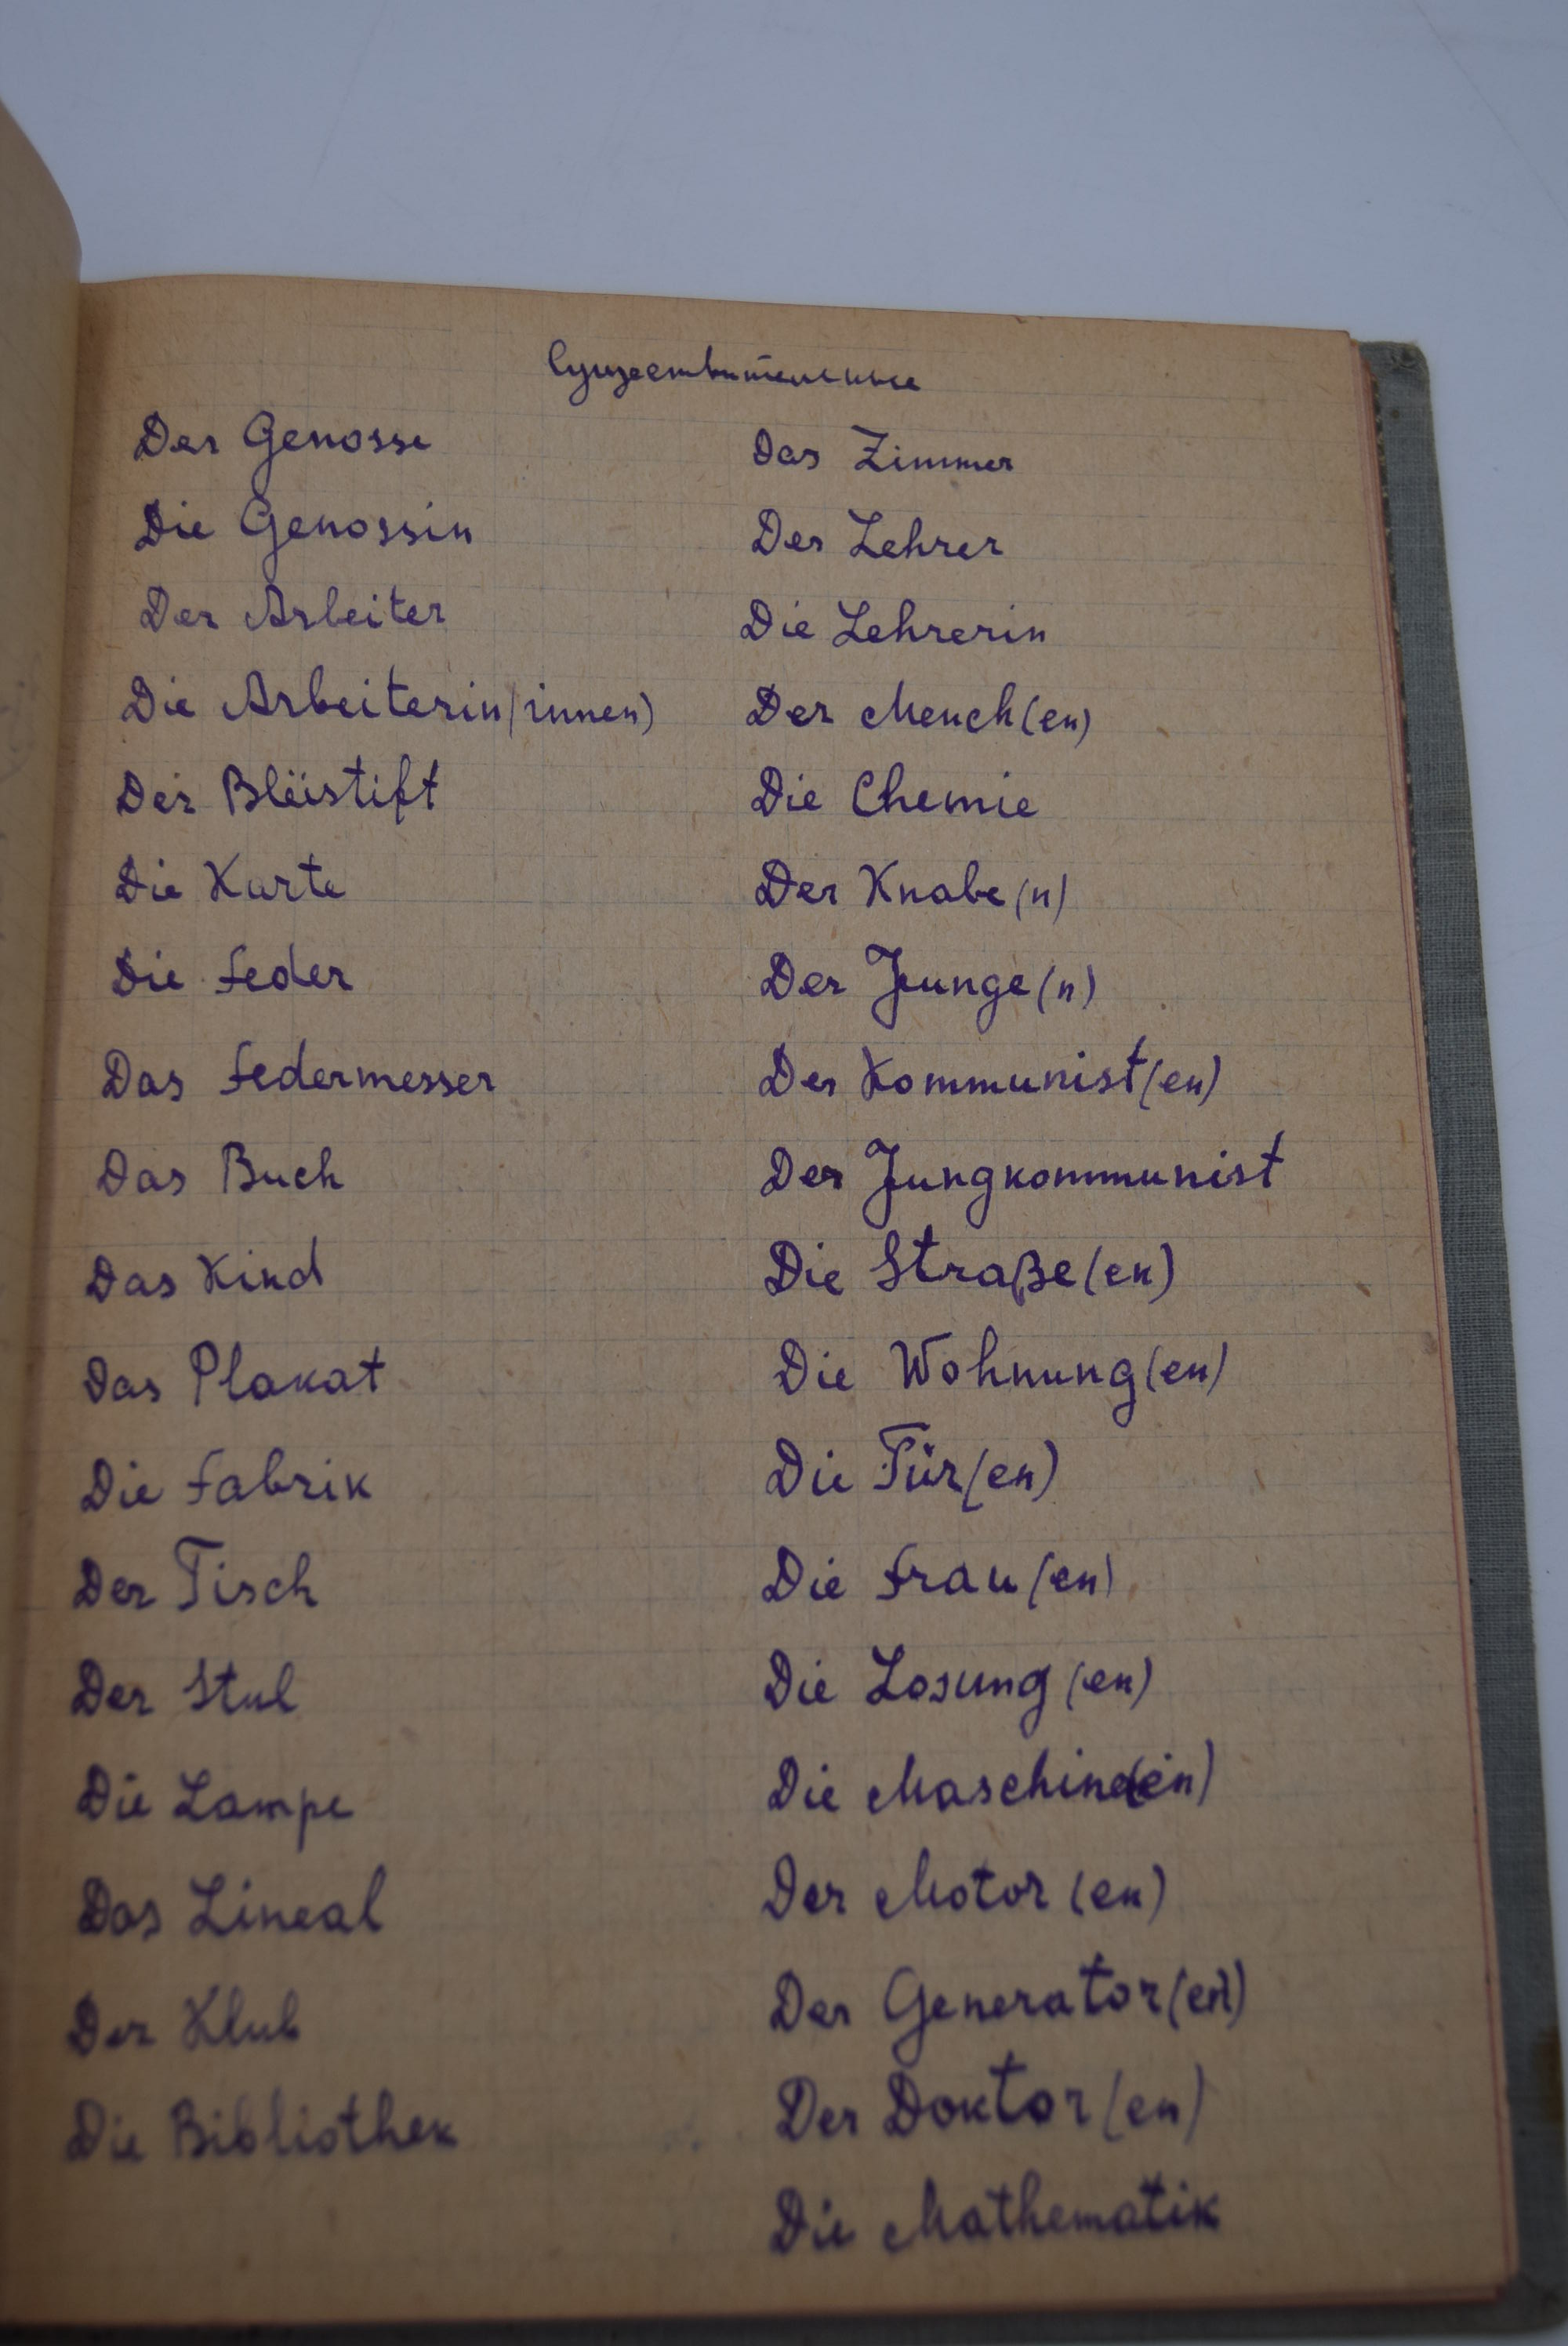 Существительные
Der Genosse
Die Genossin
Der Arbeiter
Die Arbeiterin(innen)
Der Bleistift
Die Karte
Die Feder
Das Federmesser
Das Buch
Das Kind
Das Plakat
Die Fabrik
Der Tisch
Der Stul
Die Lampe
Das Lineal
Der Klub
Die Bibliothek
Das Zimmer
Der Lehrer
Die Lehrerin
Der Mench(en)
Die Chemie
Der Knabe(n)
Der Junge(n)
Der Kommunist(en)
Der Jungkommunist
Die Straße(en)
Die Wohnung(en)
Die Tür(en)
Die Frau(en)
Die Losung(en)
Die Maschine(en)
Der Motor(en)
Der Generator(en)
Der Doktor(en)
Die Mathematik